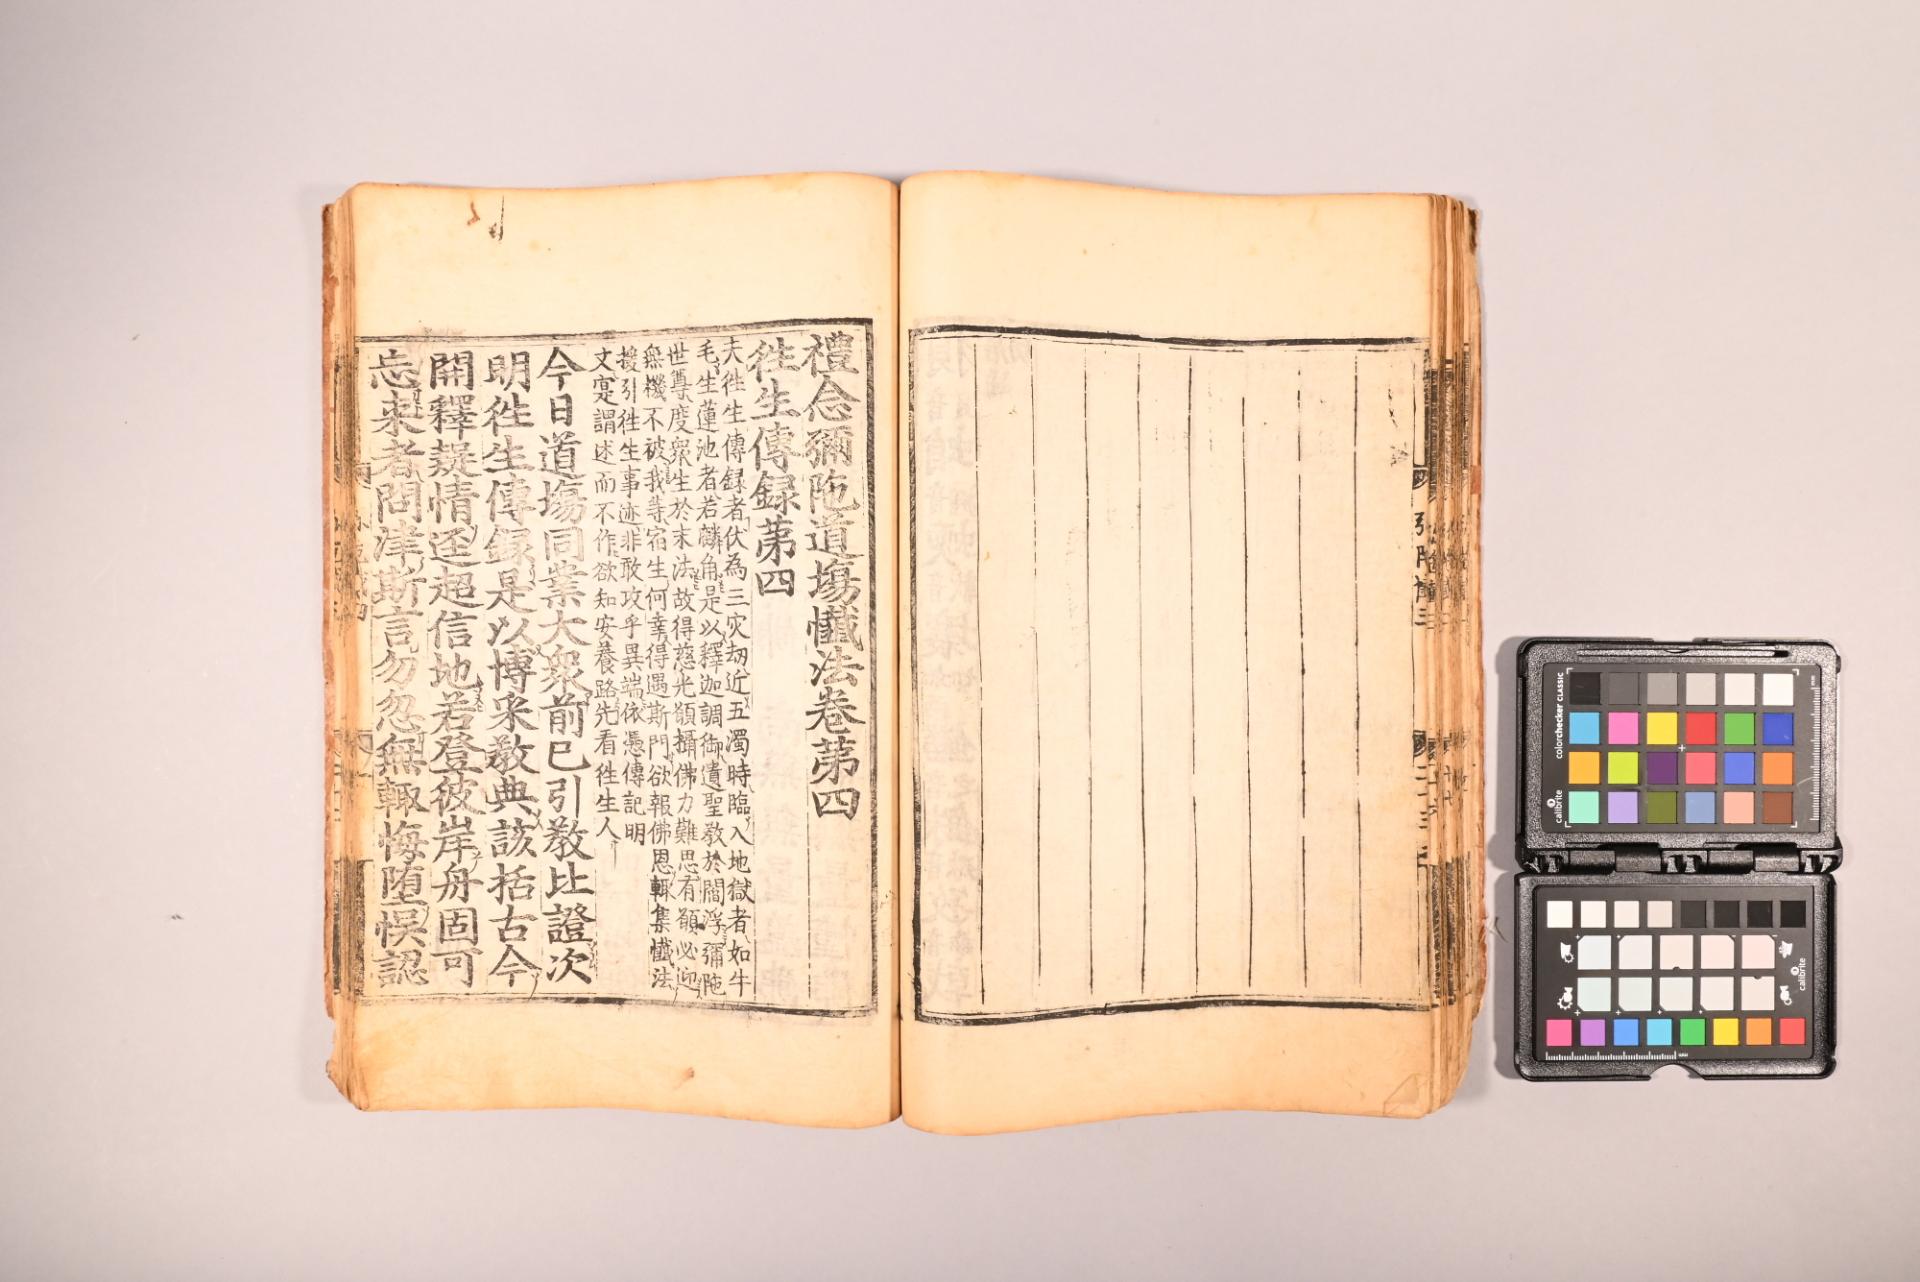 禮念彌陁道塲懺法卷苐四
徃生傳録苐四
夫徃生傳録者伏為三灾劫近五濁時臨入地獄者如牛
毛生蓮池者若麟角是以釋迦調御遺聖敎於閻浮彌陁
世尊度衆生於末法故得慈光頷攝佛力難思有願必迎
無機不被我等宿生何幸得遇斯門欲報佛恩輙集懺法
援引徃生事迹非敢攻乎異端依憑傳記明
文寔謂述而不作欲知安養路先看徃生人
今日道塲同業大衆前已引敎比證次
明徃生傳録是以博采敎典該括古今
開釋疑情逕超信地若登彼岸舟固可
忘來者問津斯言勿忽無輙悔堕悞認
二十三
colorchecker CLASSIC
calibrite
calibrite